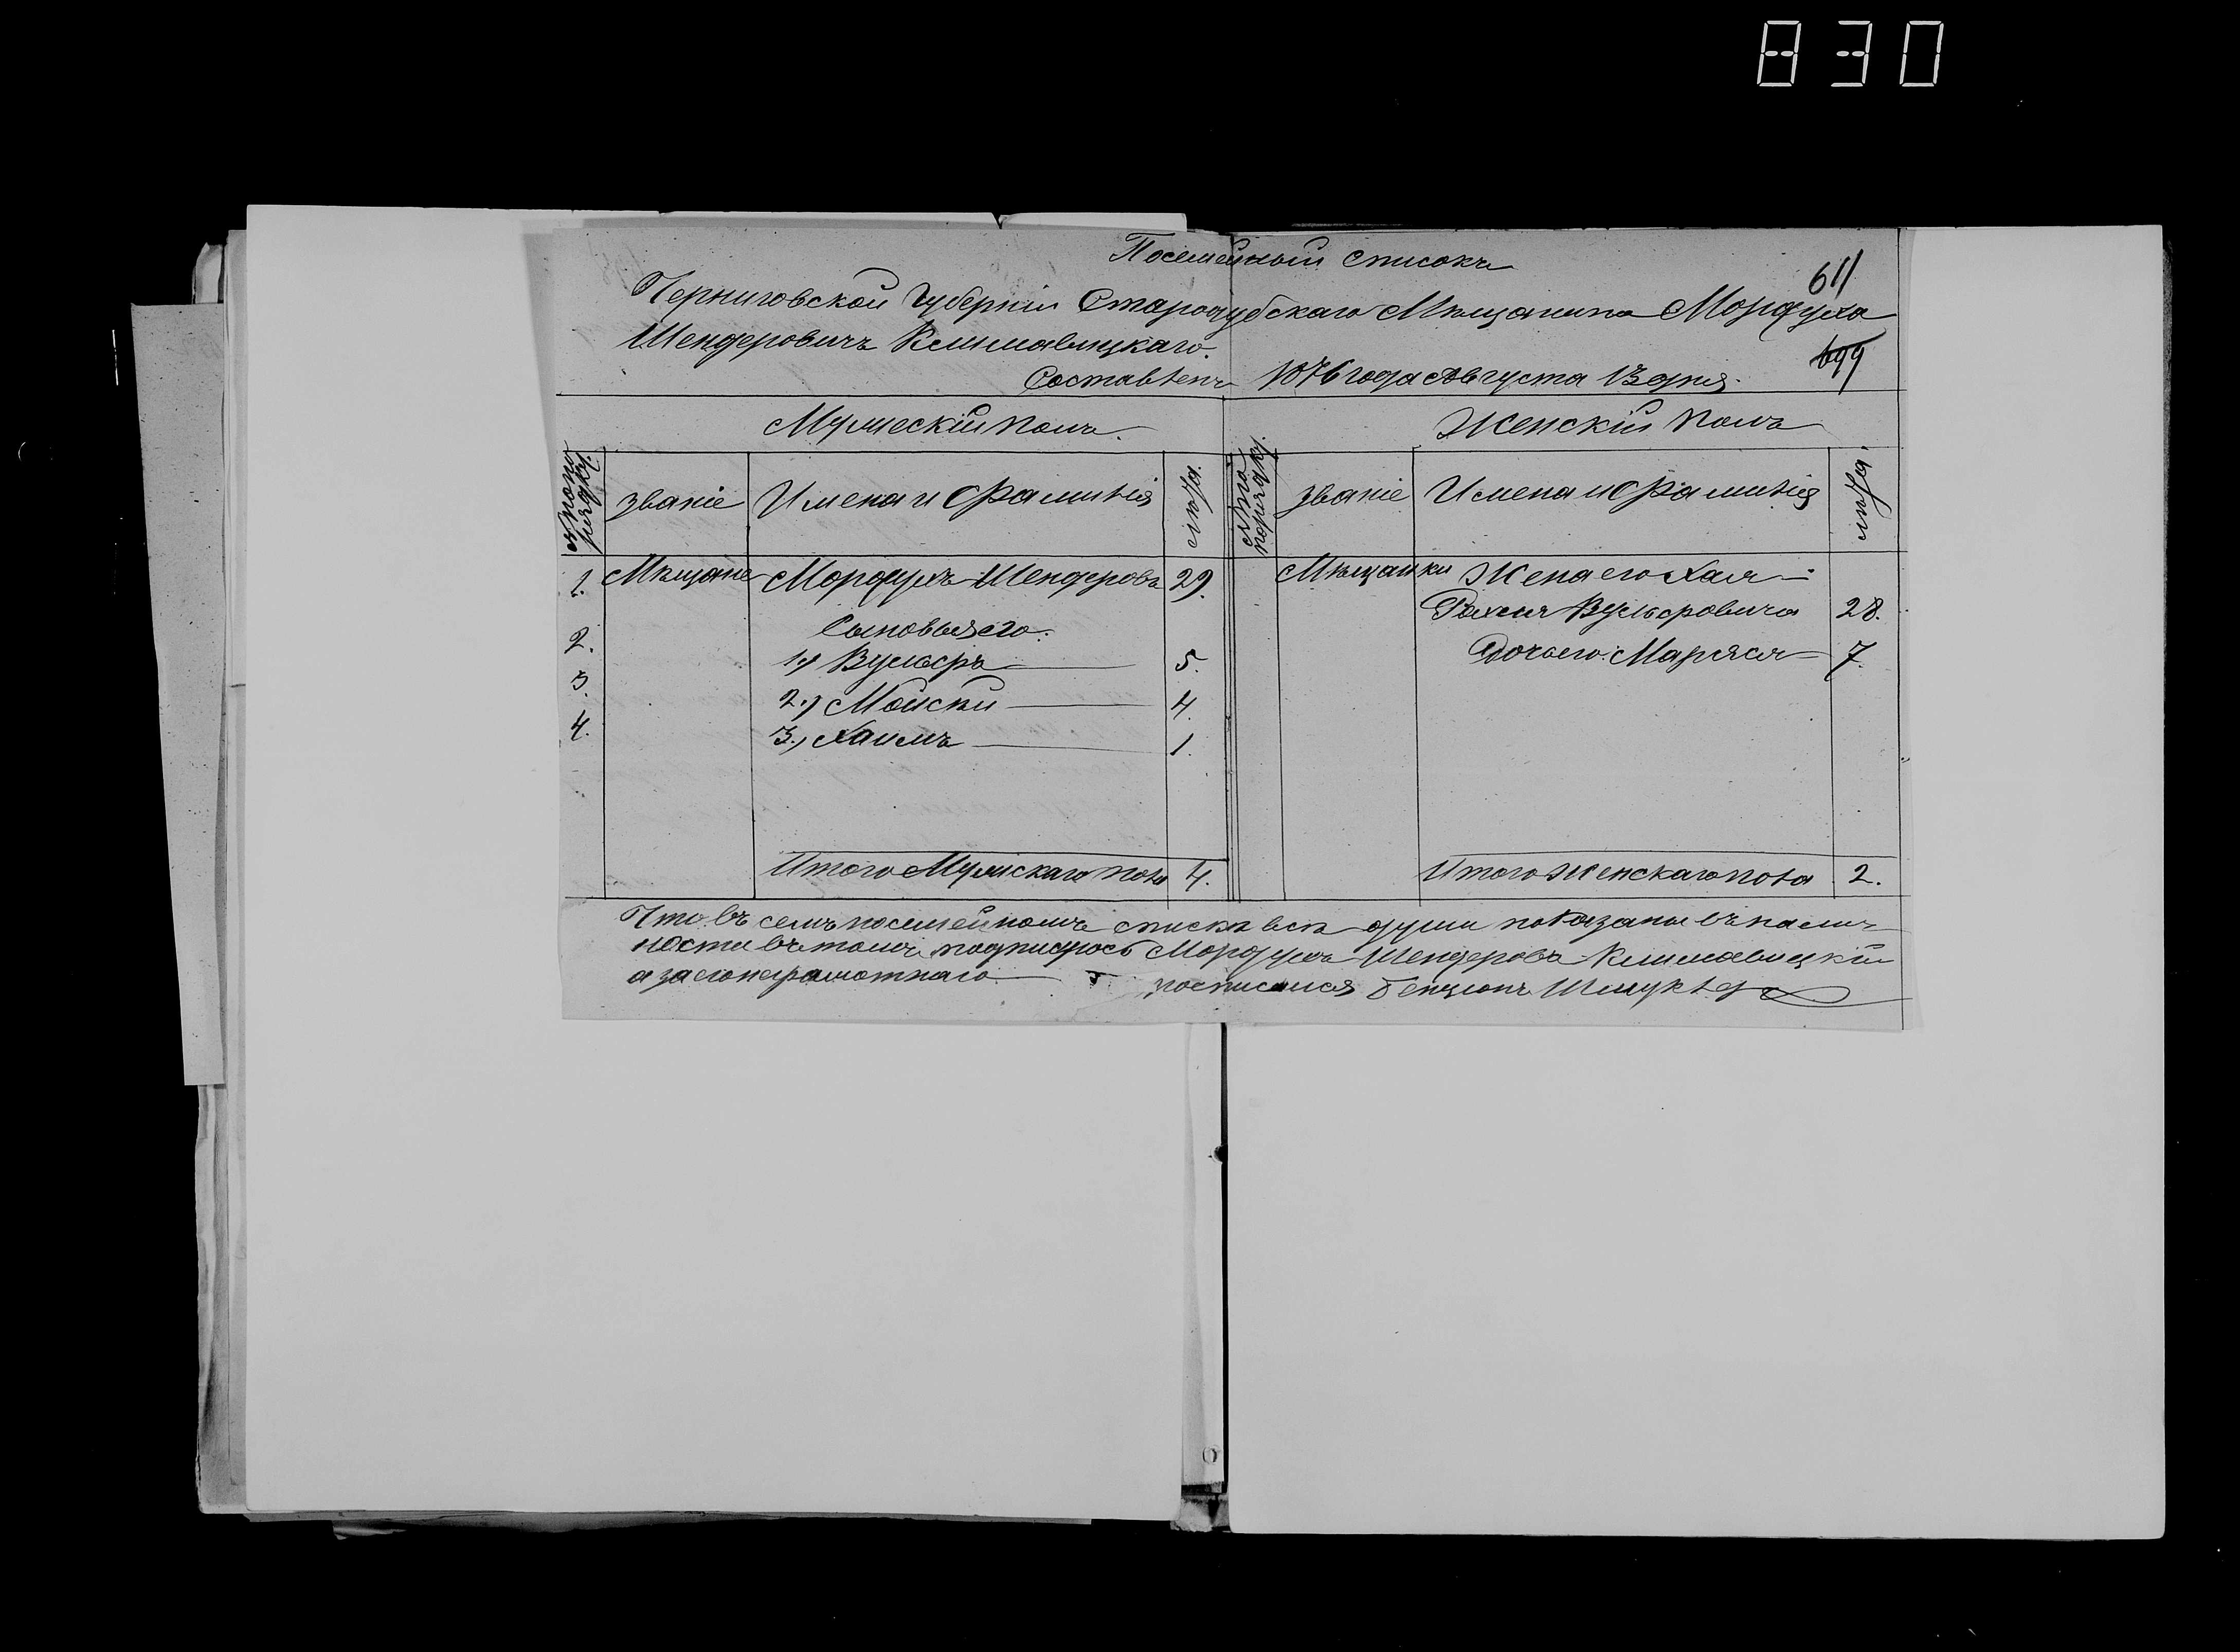 830
Посемейный списокъ
611
Черниговской Губерніи Стародубскаго Мѣщанина Мордуха
Шендеровичъ Климавицкаго.
699
Составленъ 1876 года Августа 13 дня.
Мужескій полъ.
Женскій полъ
№ по порядку.
званіе
Имена и Фамилія
лѣта.
№ по порядку.
званіе
Имена и Фамилія
лѣта.
1. Мѣщане Мордухъ Шендеровъ 29.
Мѣщанки Жена его Хая-
Рахля Вульфовича 28.
2. Сыновья его.
1.) Вульфъ 5.
Дочь его: Маряся 7.
3. 2.) Мойски 4.
4. 3.) Хаимъ 1.
Итого Мужскаго пола 4.
Итого Женскаго пола 2.
Что въ семъ посемейномъ спискѣ всѣ души показаны въ налич-
ности въ томъ подписуюсь Мордухъ Шендеровъ Климавицкій
а за его неграмотнаго росписался Бенціонъ